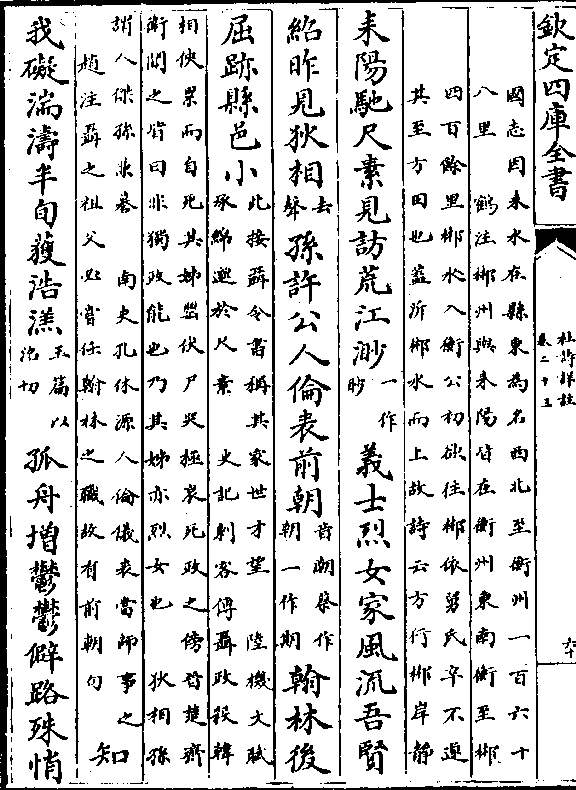 欽定四庫全書
杜詩詳註
卷二十三
六十
國志因耒水在縣東為名西北至衡州一百六十
八里　鶴注郴州與耒陽皆在衡州東南衡至郴
四百餘里郴水入衡公初欲往郴依舅氏卒不遂
其至方田也蓋泝郴水而上故詩云方行郴岸靜
耒陽馳尺素見訪荒江渺一作眇義士烈女家風流吾賢
紹昨見狄相去聲孫許公人倫表前朝音潮蔡作朝一作期翰林後
屈跡縣邑小此接聶令書稱其家世才望　陸機文賦
承綿邈於尺素　史記刺客傳聶政殺韓
相俠累而自死其姊罃伏尸哭極哀死政之傍晉楚齊
衛聞之皆曰非獨政能也乃其姊亦烈女也　狄相孫
謂人傑孫兼謩　南史孔休源人倫儀表當師事之
趙注聶之祖父必嘗任翰林之職故有前朝句　知
我礙湍濤半旬獲浩溔玉篇以沼切孤舟增鬱鬱僻路殊悄